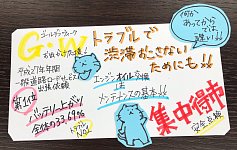 ゴールデンウィーク
G.W
お出かけ前に
トラブルで
渋滞おこさない
ためにも!!
何か
あってからでは
遅い!!
平成27年年間
一般道路ロードサービス
出張依頼
第1位
バッテリー上がり
全体の33.69%
エンジンオイル交換
は
メンテナンスの基本!!
集中得市
安全点検